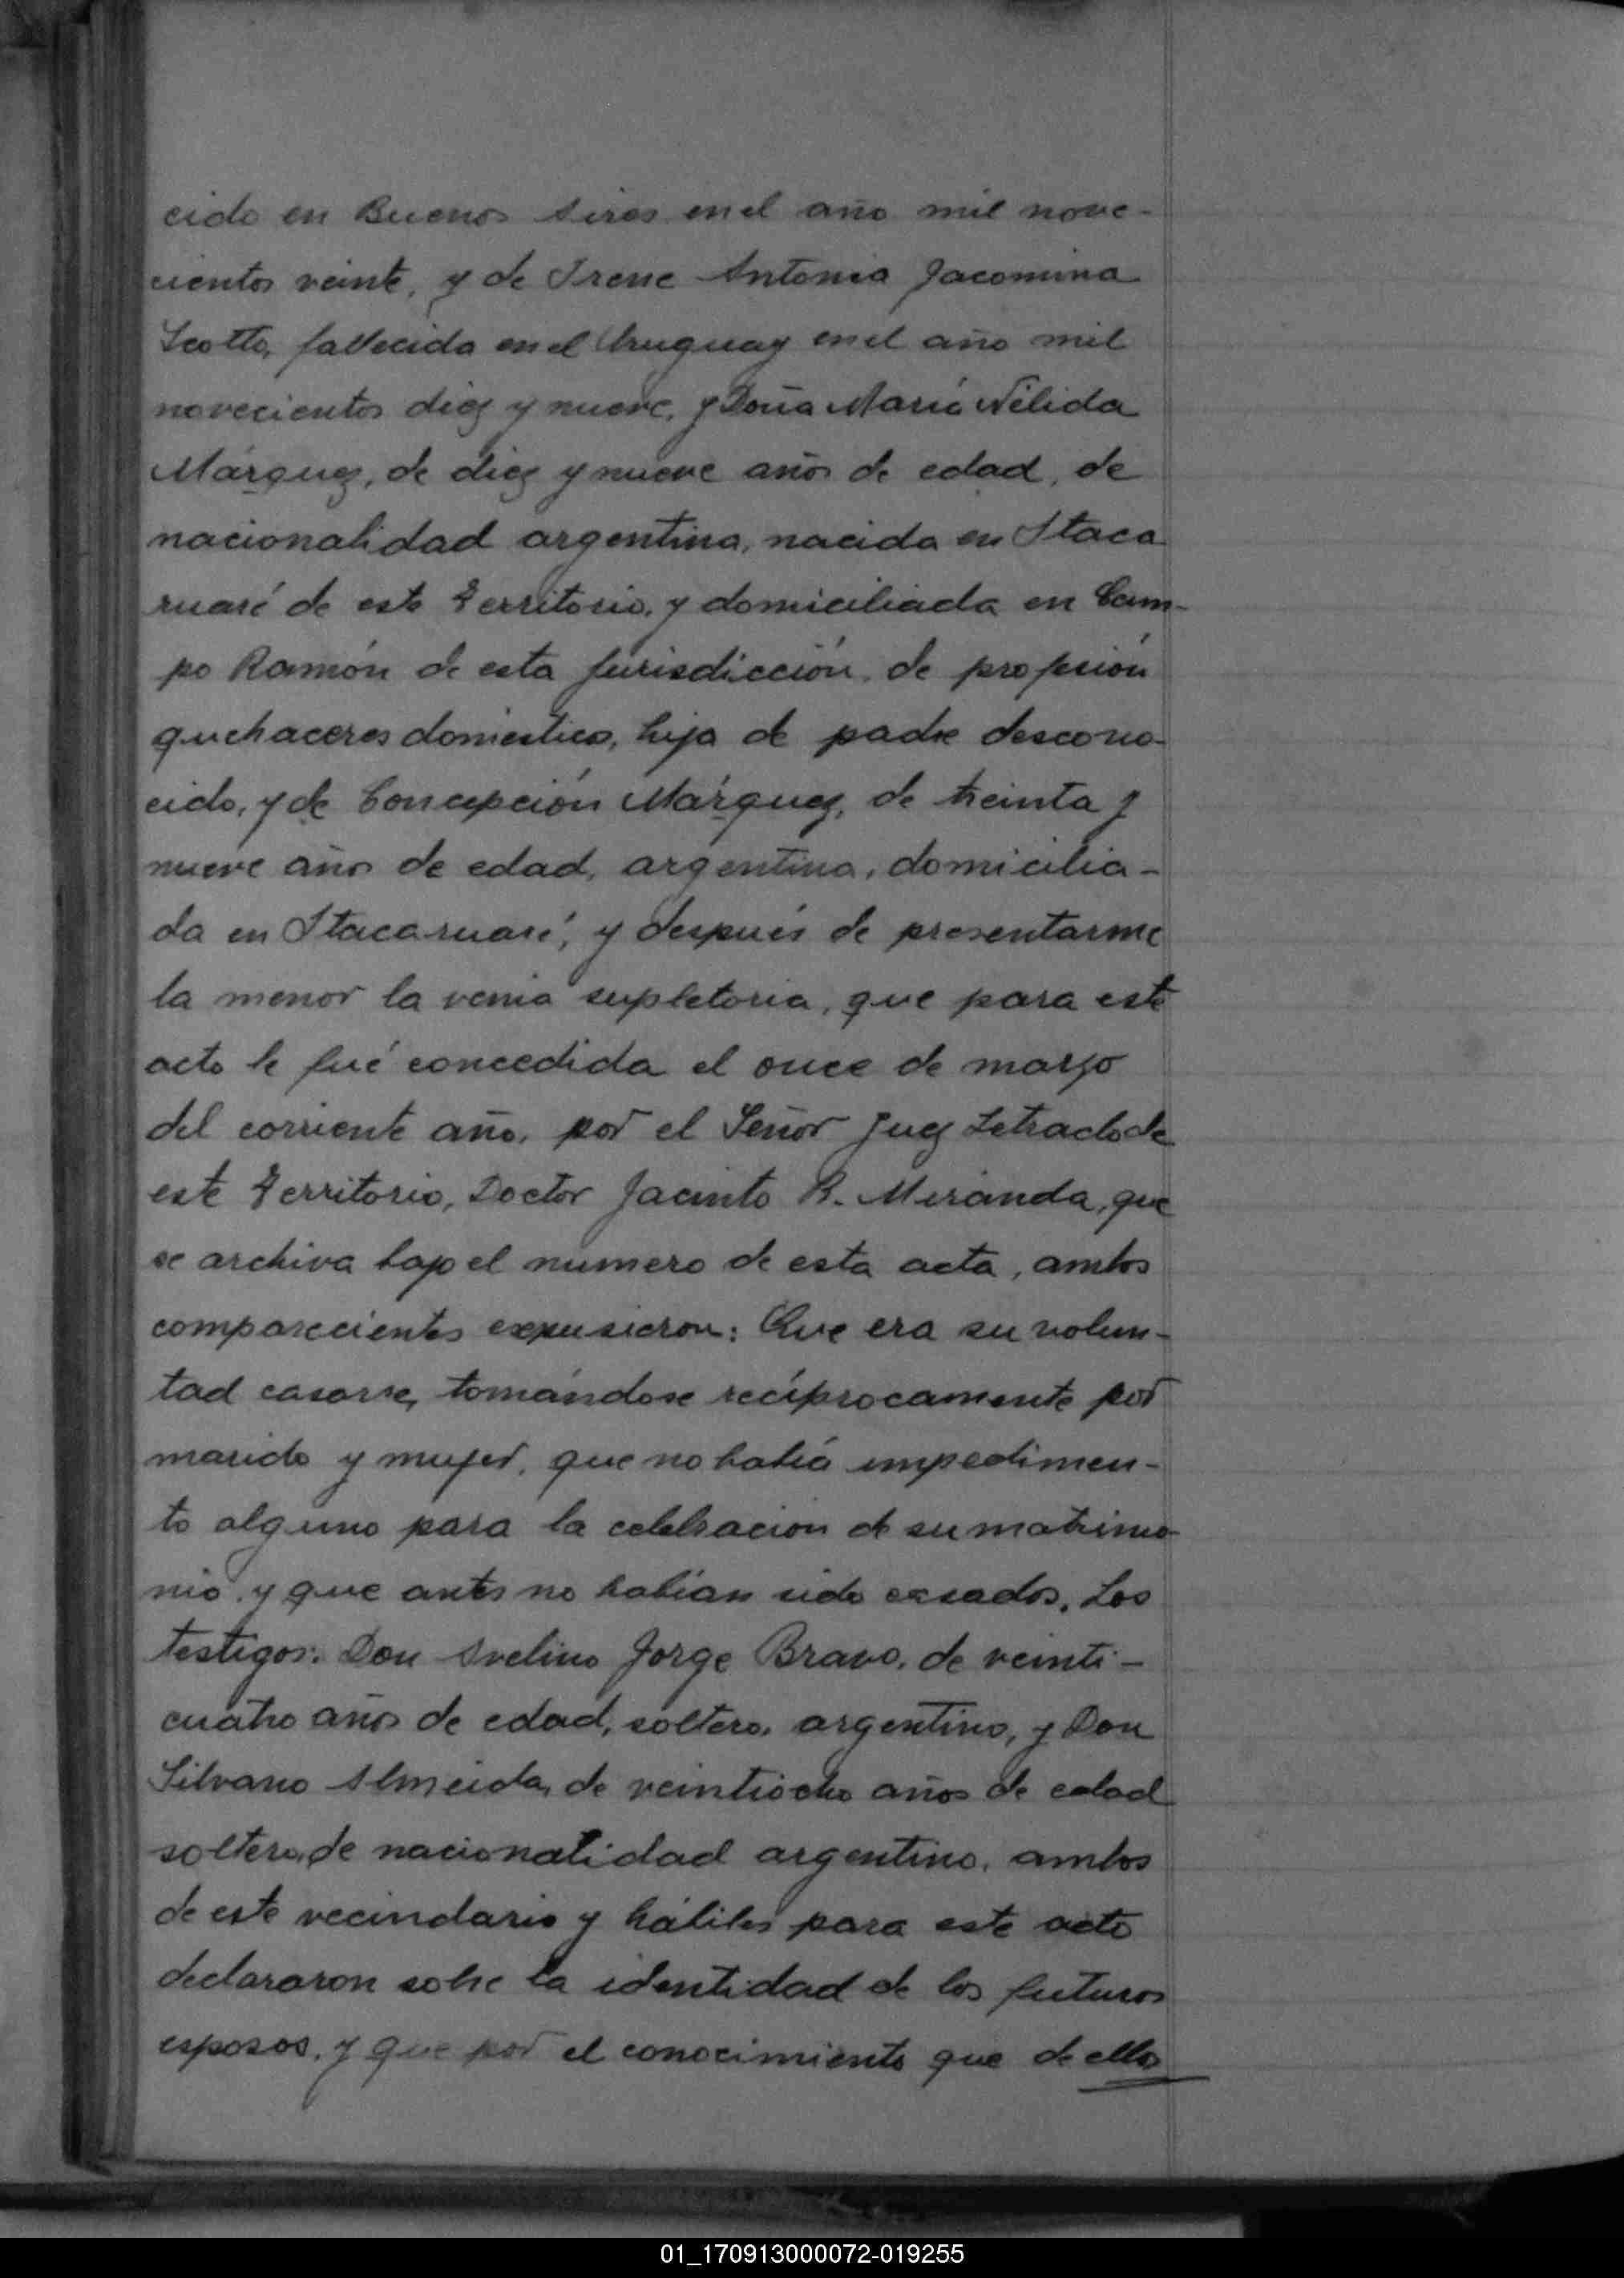 cido en Buenos Aires en el año mil nove-
cientos veinte, y de Irene Antonia Jacomina
Scotto, fallecida en el Uruguay en el año mil
novecientos diez y nueve, y Doña María Nélida
Márquez, de diez y nueve años de edad, de
nacionalidad argentina, nacida en Itaca
ruaré de este Territorio, y domiciliada en Cam-
po Ramón de esta jurisdicción, de profesión
quehaceres domésticos, hija de padre descono-
cido, y de Concepción Márquez, de treinta y
nueve años de edad, argentina, domicilia-
da en Itacaruaré, y después de presentarme
la menor la venia supletoria, que para este
acto le fué concedida el once de marzo
del corriente año, por el Señor Juez Letrado de
este Territorio, Doctor Jacinto R. Miranda, que
se archiva bajo el numero de esta acta, ambos
comparecientes expusieron: Que era su volun-
tad casarse, tomándose recíprocamente por
marido y mujer, que no había impedimen-
to alguno para la celebracion de su matrimo-
nio, y que antes no habían sido casados. Los
testigos: Don Avelino Jorge Bravo, de veinti-
cuatro años de edad, soltero, argentino, y Don
Silvano Almeida, de veintiocho años de edad
soltero, de nacionalidad argentino, ambos
de este vecindario y hábiles para este acto
declararon sobre la identidad de los futuros
esposos, y que por el conocimiento que de ellos
01_170913000072-019255